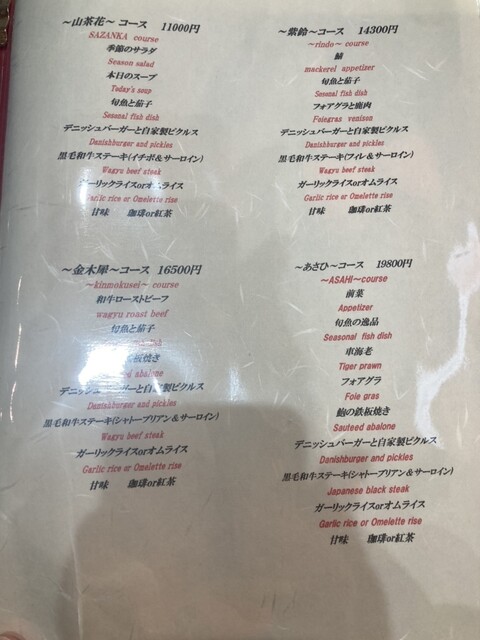 ～山茶花～ コース　11000円
SAZANKA course
季節のサラダ
Season salad
本日のスープ
Today's soup
旬魚と茄子
Sesonal fish dish
デニッシュバーガーと自家製ピクルス
Danishburger and pickles
黒毛和牛ステーキ(イチボ＆サーロイン)
Wagyu beef steak
ガーリックライスorオムライス
Garlic rice or Omelette rise
甘味　珈琲or紅茶
～紫鈴～コース　14300円
～rindo～ course
鯖
mackerel appetizer
旬魚と茄子
Sesonal fish dish
フォアグラと鹿肉
Foiegras venison
デニッシュバーガーと自家製ピクルス
Danishburger and pickles
黒毛和牛ステーキ(フィレ＆サーロイン)
Wagyu beef steak
ガーリックライスorオムライス
Garlic rice or Omelette rise
甘味　珈琲or紅茶
～金木犀～コース　16500円
～kinmokusei～ course
和牛ローストビーフ
wagyu roast beef
旬魚と茄子
板焼き
abalone
デニッシュバーガーと自家製ピクルス
Danishburger and pickles
黒毛和牛ステーキ(シャトーブリアン＆サーロイン)
Wagyu beef steak
ガーリックライスorオムライス
Garlic rice or Omelette rise
甘味　珈琲or紅茶
～あさひ～コース　19800円
～ASAHI～course
前菜
Appetizer
旬魚の逸品
Seasonal fish dish
車海老
Tiger prawn
フォアグラ
Foie gras
鮑の鉄板焼き
Sauteed abalone
デニッシュバーガーと自家製ピクルス
Danishburger and pickles
黒毛和牛ステーキ(シャトーブリアン＆サーロイン)
Japanese black steak
ガーリックライスorオムライス
Garlic rice or Omelette rise
甘味　珈琲or紅茶